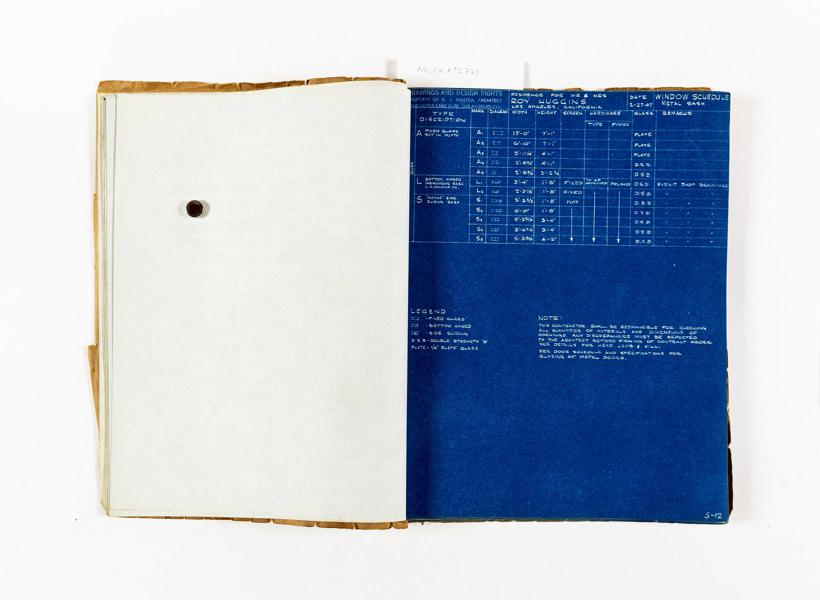 DRAWINGS AND DESIGN RIGHTS
PROPERTY OF R. J. NEUTRA, ARCHITECT
RESIDENCE FOR MR & MRS
ROY HUGGINS
LOS ANGELES, CALIFORNIA
DATE
2-27-47
WINDOW SCHEDULE
METAL SASH
TYPE
DISCRIPTION
MARK DIAGRAM WIDTH HEIGHT SCREEN HARDWARE GLASS REMARKS
TYPE FINISH
A FIXED GLASS
SET IN PUTTY
A1 7'-1" PLATE
A2 7'-1" PLATE
A3 4'-1" PLATE
A4 4'-1" D.S.B
A5 D.S.B
L BOTTOM HINGED
L1 3'-4" 1'-8" FIXED POLISHED D.S.B SUBMIT SHOP DRAWINGS
L2 1'-8" FIXED D.S.B " " "
S SIDE
SLIDING SASH
S1 1'-8" D.S.B " " "
1'-8" D.S.B " " "
3'-4" D.S.B " " "
3'-4" D.S.B " " "
4'-2" D.S.B " " "
LEGEND
- FIXED GLASS
- BOTTOM HINGED
- SIDE SLIDING
D S B - DOUBLE STRENGTH 'B'
PLATE - 1/4" PLATE GLASS
NOTE:
THIS CONTRACTOR SHALL BE RESPONSIBLE FOR CHECKING
ALL QUANTITIES OF MATERIALS AND DIMENSIONS OF
OPENINGS. ANY DISCREPANCIES MUST BE REPORTED
TO THE ARCHITECT BEFORE SIGNING OF CONTRACT ORDER.
SEE DETAILS FOR HEAD JAMB & SILL.
SEE DOOR SCHEDULE AND SPECIFICATIONS FOR
GLAZING OF METAL DOORS.
S-12